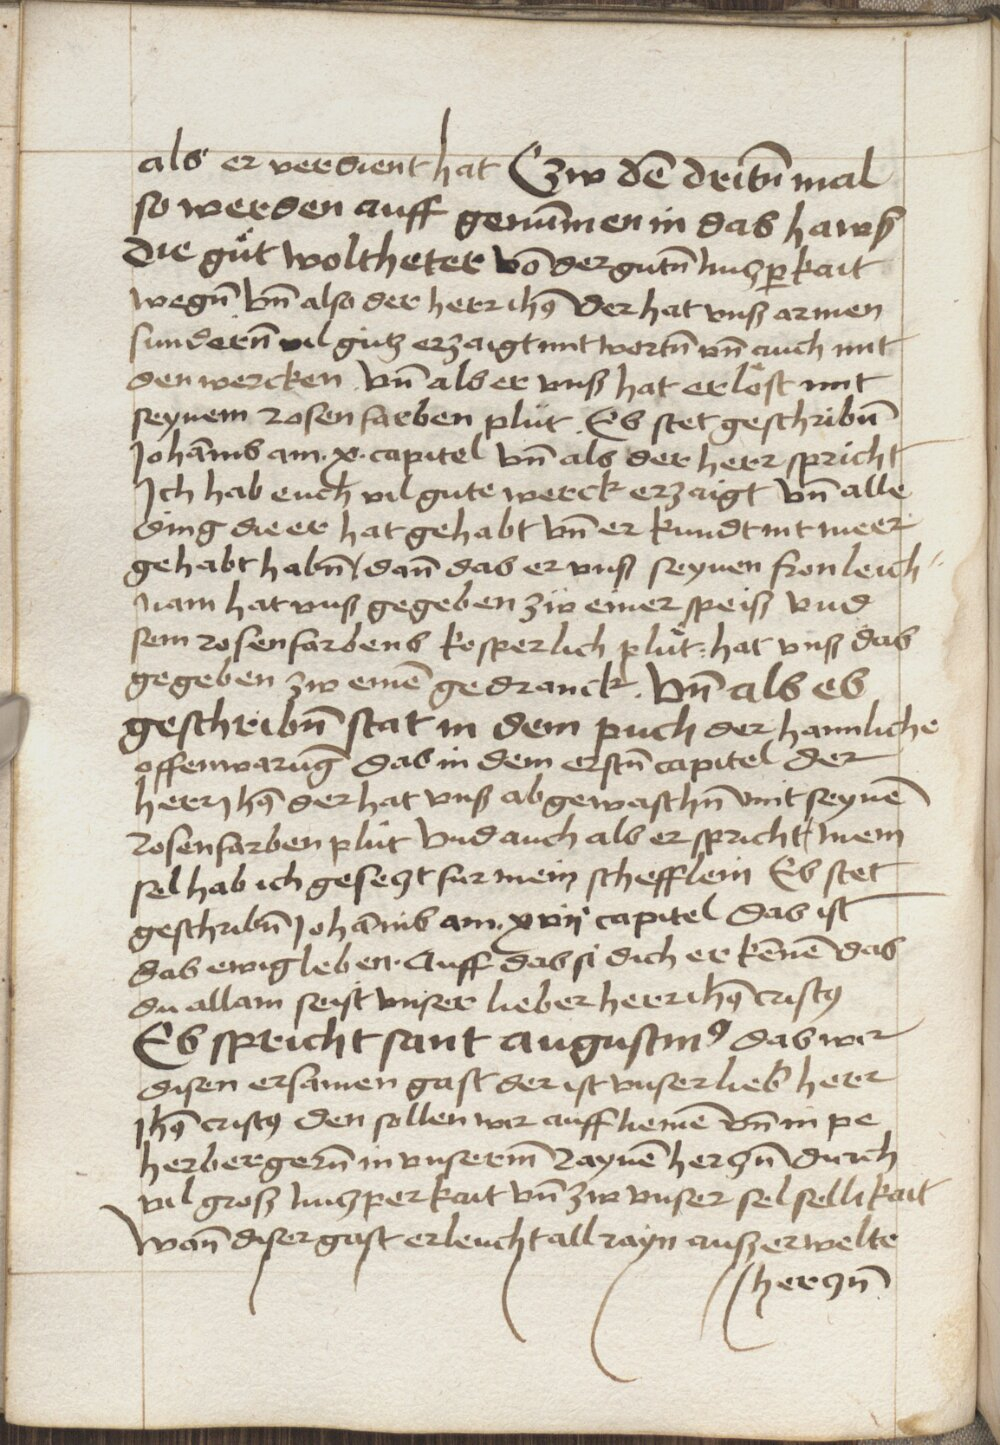 als er verdient hat Czw dē dritn̄ mal
so werden auff genūmen in das hawß
die gůt woltheter vō der gutn̄ nuczp̱erkait
wegn̄ vn̄ also der herr ihꝯ der hat vnß armen
sundern̄ vil gutz erzaigt mit wortn̄ vn̄ auch mit
den wercken vn̄ als er vnß hat erlost mit
seynem rosenfarben plut Es stet geschribn̄
Johānis am .x. capitel vn̄ als der herr spricht
Ich hab euch vil gute werck erzaigt vn̄ alle
ding die er hat gehabt vn̄ er kundt nit meer
gehabt habn̄ / dan̄ das er vnß seynen fronleich
nam hat vnß gegeben zw einer speiß vnd
sein rosenfarbens kosperlich plůt hat vnß das
gegeben zw einē gedranck. vn̄ als es
geschribn̄ stat in dem puch der haimliche
offenwarūg das in dem erstn̄ capitel der
herr Jhꝯ der hat vnß abgewaschn̄ mit seynē
rosenfarben plut vnd auch als er spricht / mein
sel hab ich geseczt fur mein schefflein Es stet
geschribn̄ Johānis am .xvij capitel das ist
das ewig leben. Auff das si dich erkēnē das
du allain seist vnser lieber herr ihꝯ cristꝯ
Es spricht sant augustinꝯ das wir
disen ersamen gast der ist vnser lieb herr
Jhꝯ cristꝯ den sollen wir auff nemē vn̄ in pe
herbergern̄ in vnserm̄ raynē herczn̄ durch
vil groß nuczperkait vn̄ zw vnser sel sellikait
Wan̄ diser gast erleucht all rayn außerwelte
herczn̄